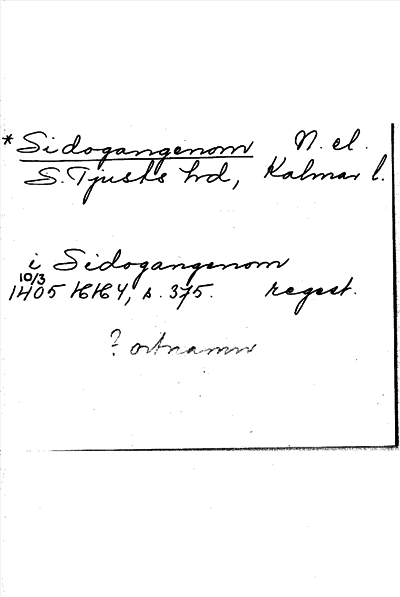 * Sidogangenom N. el.
S. Tjusts hd, Kalmar l.
i Sidogangenom
10/3
1405 HH 4, s. 375. regest.
? ortnamn